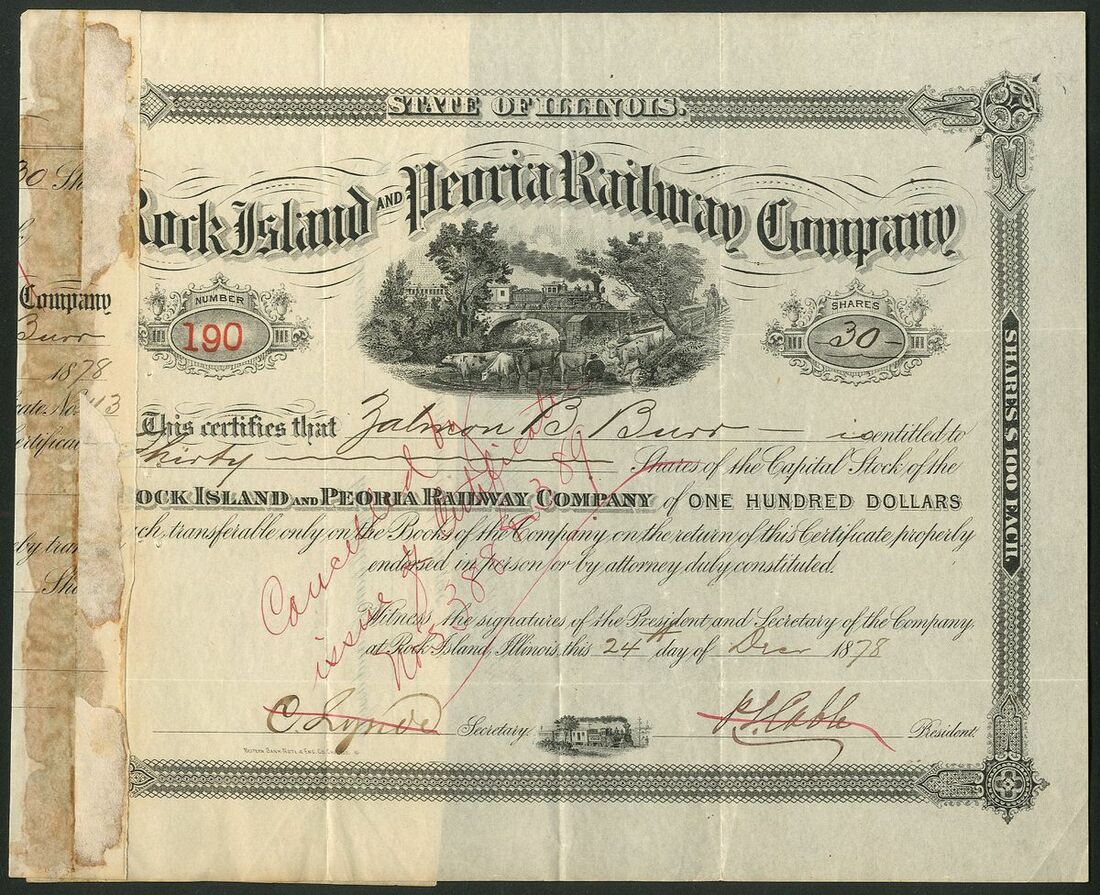 STATE OF ILLINOIS.
Rock Island AND Peoria Railway Company
30 Sh
Company
Burr
1878
NUMBER
190
SHARES
30
This certifies that Zalmon B. Burr is entitled to
Thirty Shares of the Capital Stock of the
ROCK ISLAND AND PEORIA RAILWAY COMPANY of ONE HUNDRED DOLLARS
ch, transferable only on the Books of the Company, on the return of this Certificate properly
endorsed in person or by attorney duly constituted.
Witness, the signatures of the President and Secretary of the Company
at Rock Island, Illinois, this 24th day of Decr 1878
Cancelled by
issue of Certificate
C. Lynde Secretary.
President.
WESTERN BANK NOTE & ENG. CO. CHICAGO
SHARES $100 EACH.